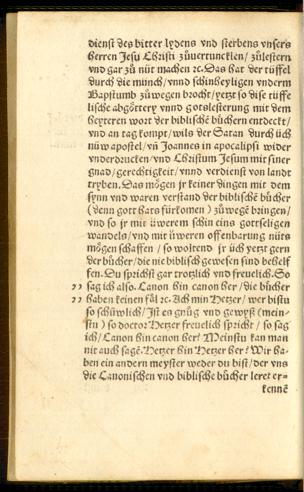 dienst des bitter lydens vnd sterbens vnsers
herren Jesu Christi zůuertuncklen / zůlestern
vnd gar zů nüt machen ꝛc. Das hat der tüffel
durch die münch / vnnd schinheyligen vnderm
Bapstumb zůwegen brocht / yetzt so dise tüffe
lische abgöttery vnnd gotslesterung mit dem
heyteren wort der biblischē bücheren entdeckt /
vnd an tag kompt / wils der Satan durch üch
nüw apostel / vn̄ Joannes in apocalipsi wider
vnderdrucken / vnd Christum Jesum mit siner
gnad / gerechtigkeit / vnnd verdienst von landt
tryben. Das mögen jr keiner dingen mit dem
synn vnd waren verstand der biblischē bücher
(denn gott hats fürkomen) zůwegē bringen /
vnd so jr mit üwerem schin eins gottseligen
wandels / vnd mit üweren offenbarung nüts
mögen schaffen / so woltend jr üch yetzt gern
der bücher / die nie biblisch gewesen sind behelf
fen. Du sprichst gar trotzlich vnd freuelich. So
" sag ich also. Canon hin canon her / die bücher
" haben keinen fäl ꝛc. Ach min Hetzer / wer bistu
so schüwlich / Ist es gnůg vnd gewyß (mein-
stu) so doctor Hetzer freuelich spricht / so sag
ich / Canon hin canon her? Meinstu kan man
nit auch sagē. Hetzer hin Hetzer her? Wir ha-
ben ein andern meyster weder du bist / der vns
die Canonischen vnd biblische bücher leret er-
kennē